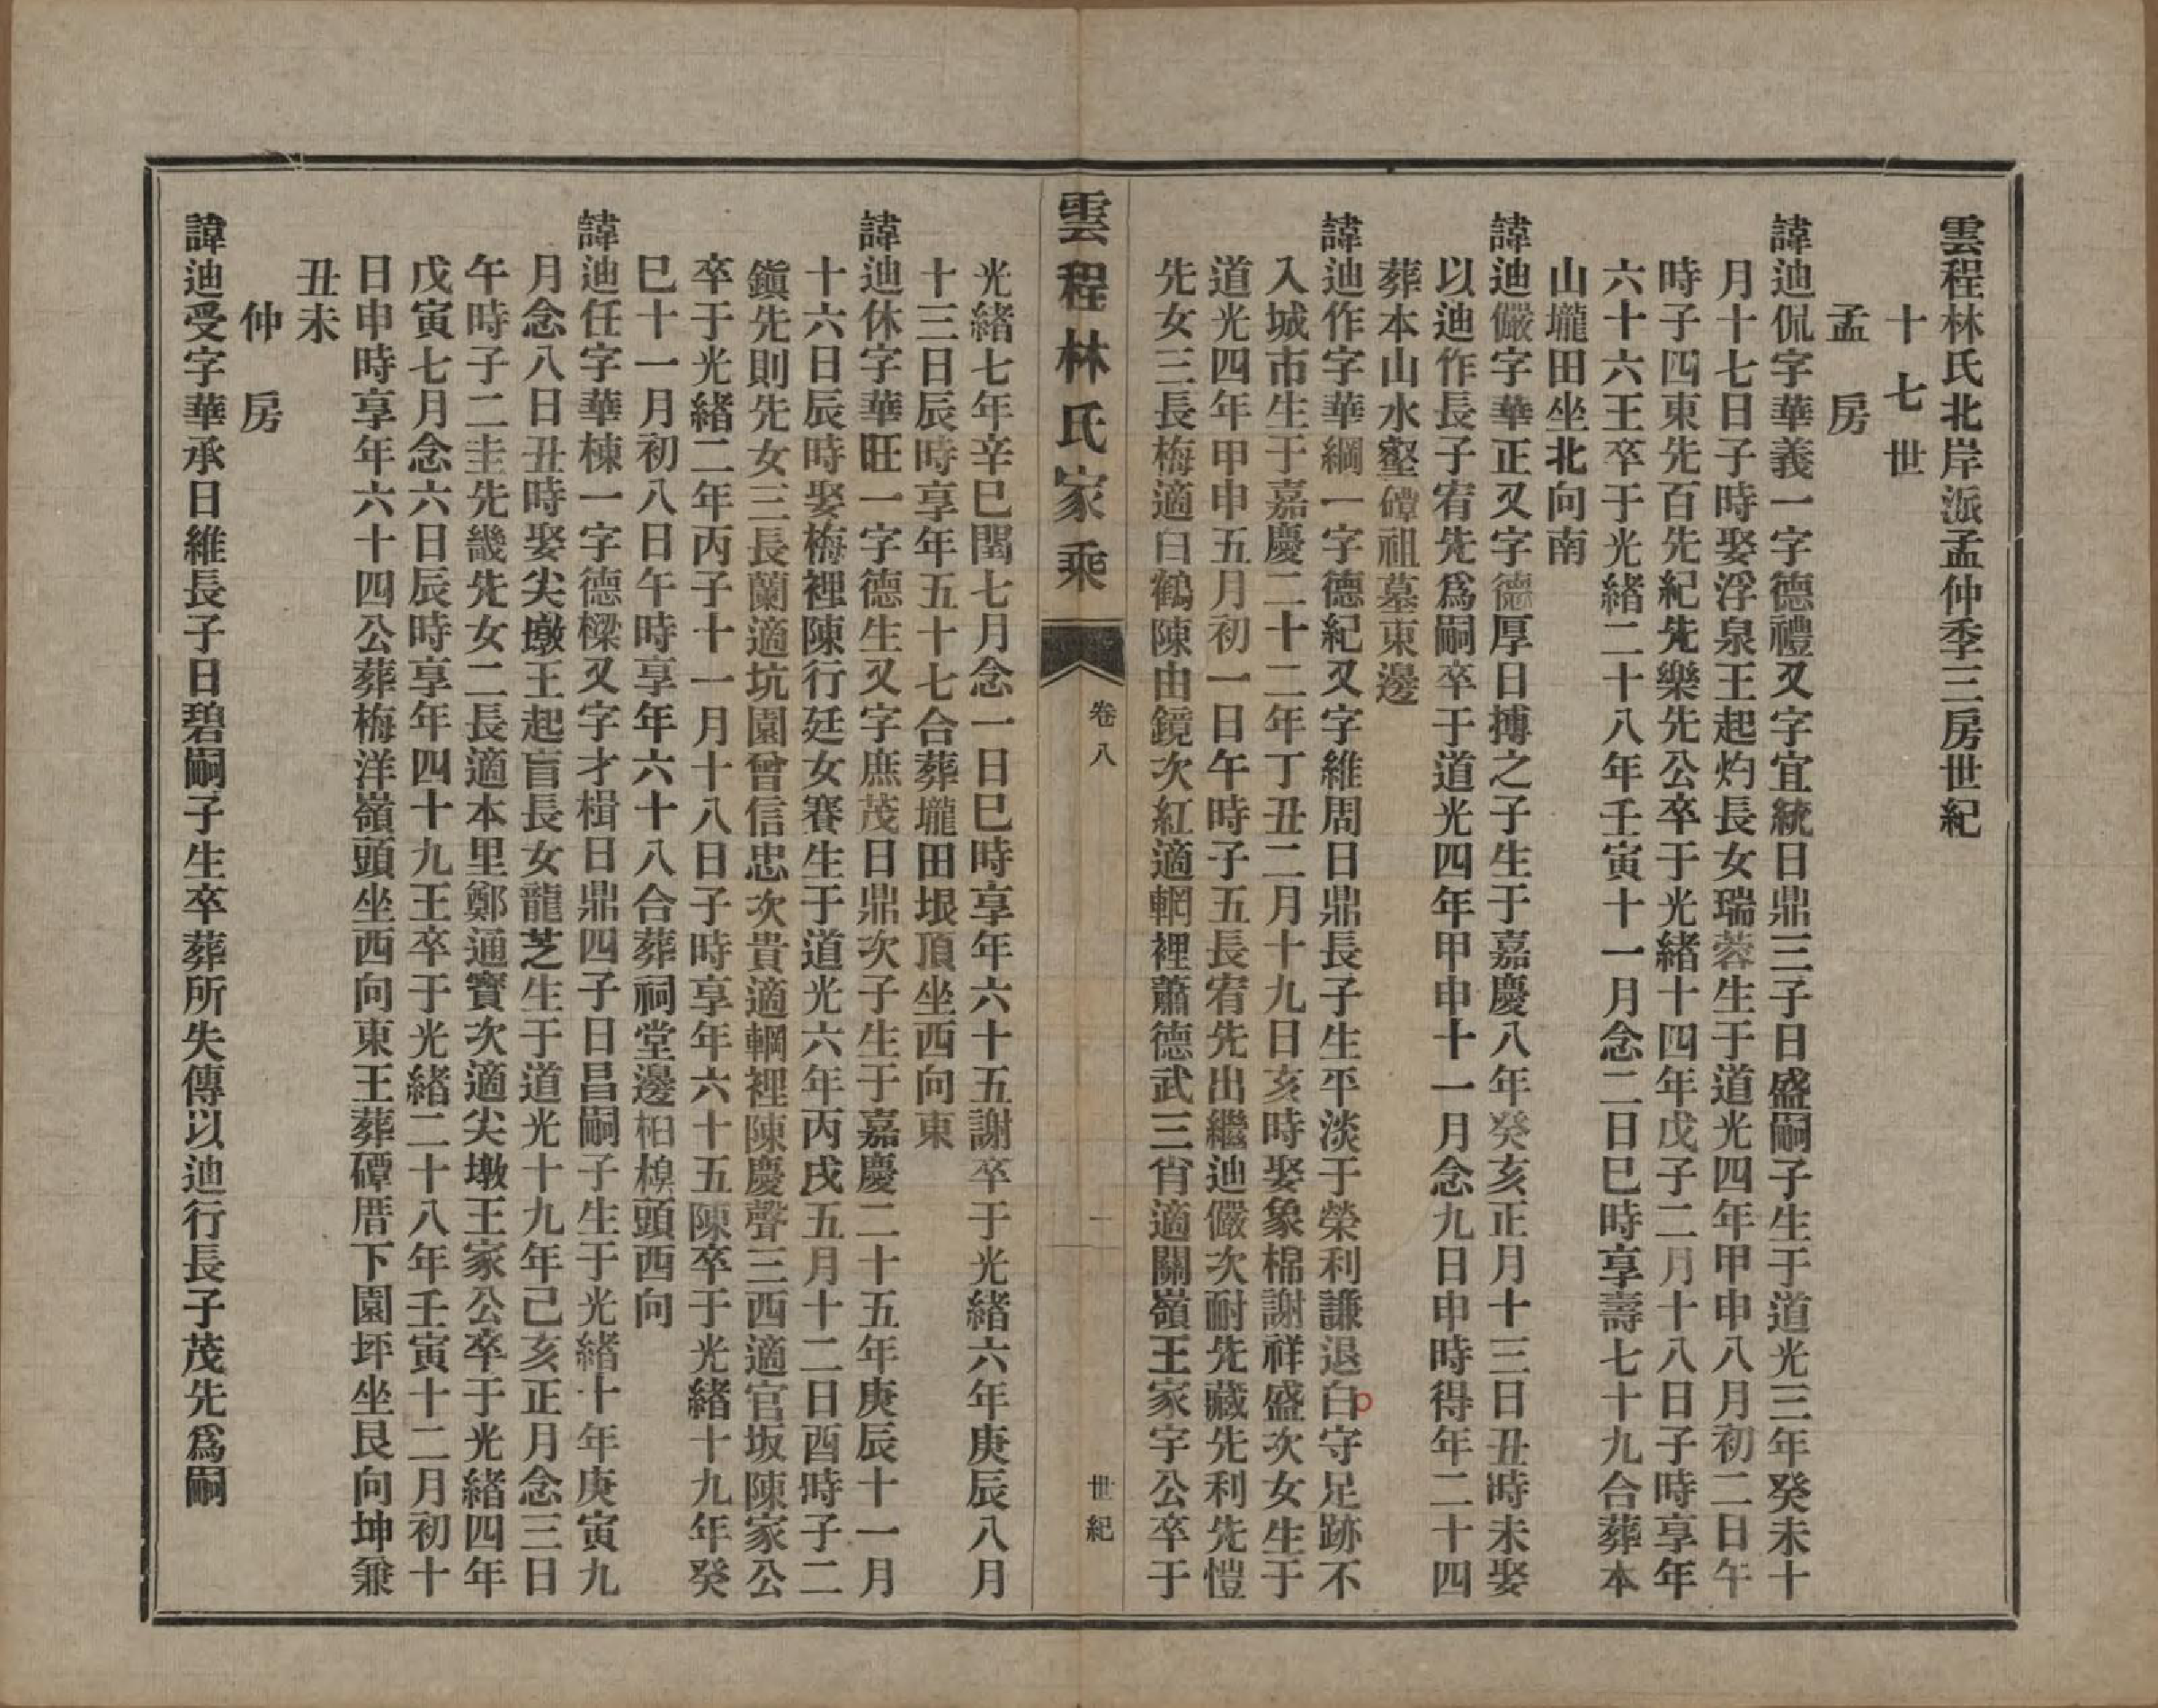 雲程林氏北岸派孟仲季三房世紀
十七世
孟房
諱迪侃字華義一字德禮又字宜統日鼎三子日盛嗣子生于道光三年癸未十
月十七日子時娶浮泉王起灼長女瑞蓉生于道光四年甲申八月初二日午
時子四東先百先紀先樂先公卒于光緒十四年戊子二月十八日子時享年
六十六王卒于光緒二十八年壬寅十一月念二日巳時享壽七十九合葬本
山壠田坐北向南
諱迪儼字華正又字德厚日搏之子生于嘉慶八年癸亥正月十三日丑時未娶
以迪作長子宥先爲嗣卒于道光四年甲申十一月念九日申時得年二十四
葬本山水壑磹祖墓東邊
諱迪作字華綱一字德紀又字維周日鼎長子生平淡于榮利謙退白守足跡不
入城市生于嘉慶二十二年丁丑二月十九日亥時娶象棉謝祥盛次女生于
道光四年甲申五月初一日午時子五長宥先出繼迪儼次耐先藏先利先愷
先女三長梅適白鶴陳由鏡次紅適輞裡蕭德武三肯適關嶺王家宇公卒于
雲程林氏家乘
卷八
一
世紀
光緒七年辛巳閏七月念一日巳時享年六十五謝卒于光緒六年庚辰八月
十三日辰時享年五十七合葬壠田垠頂坐西向東
諱迪休字華旺一字德生又字庶茂日鼎次子生于嘉慶二十五年庚辰十一月
十六日辰時娶梅裡陳行廷女賽生于道光六年丙戌五月十二日酉時子二
鎭先則先女三長蘭適坑園曾信忠次貴適輞裡陳慶聲三西適官坂陳家公
卒于光緒二年丙子十一月十八日子時享年六十五陳卒于光緒十九年癸
巳十一月初八日午時享年六十八合葬祠堂邊桕樹頭西向
諱迪任字華棟一字德樑又字才楫日鼎四子日昌嗣子生于光緒十年庚寅九
月念八日丑時娶尖墩王起盲長女龍芝生于道光十九年己亥正月念三日
午時子二圭先畿先女二長適本里鄭通寶次適尖墩王家公卒于光緒四年
戊寅七月念六日辰時享年四十九王卒于光緒二十八年壬寅十二月初十
日申時享年六十四公葬梅洋嶺頭坐西向東王葬磹厝下園坪坐艮向坤兼
丑未
仲房
諱迪受字華承日維長子日碧嗣子生卒葬所失傳以迪行長子茂先爲嗣